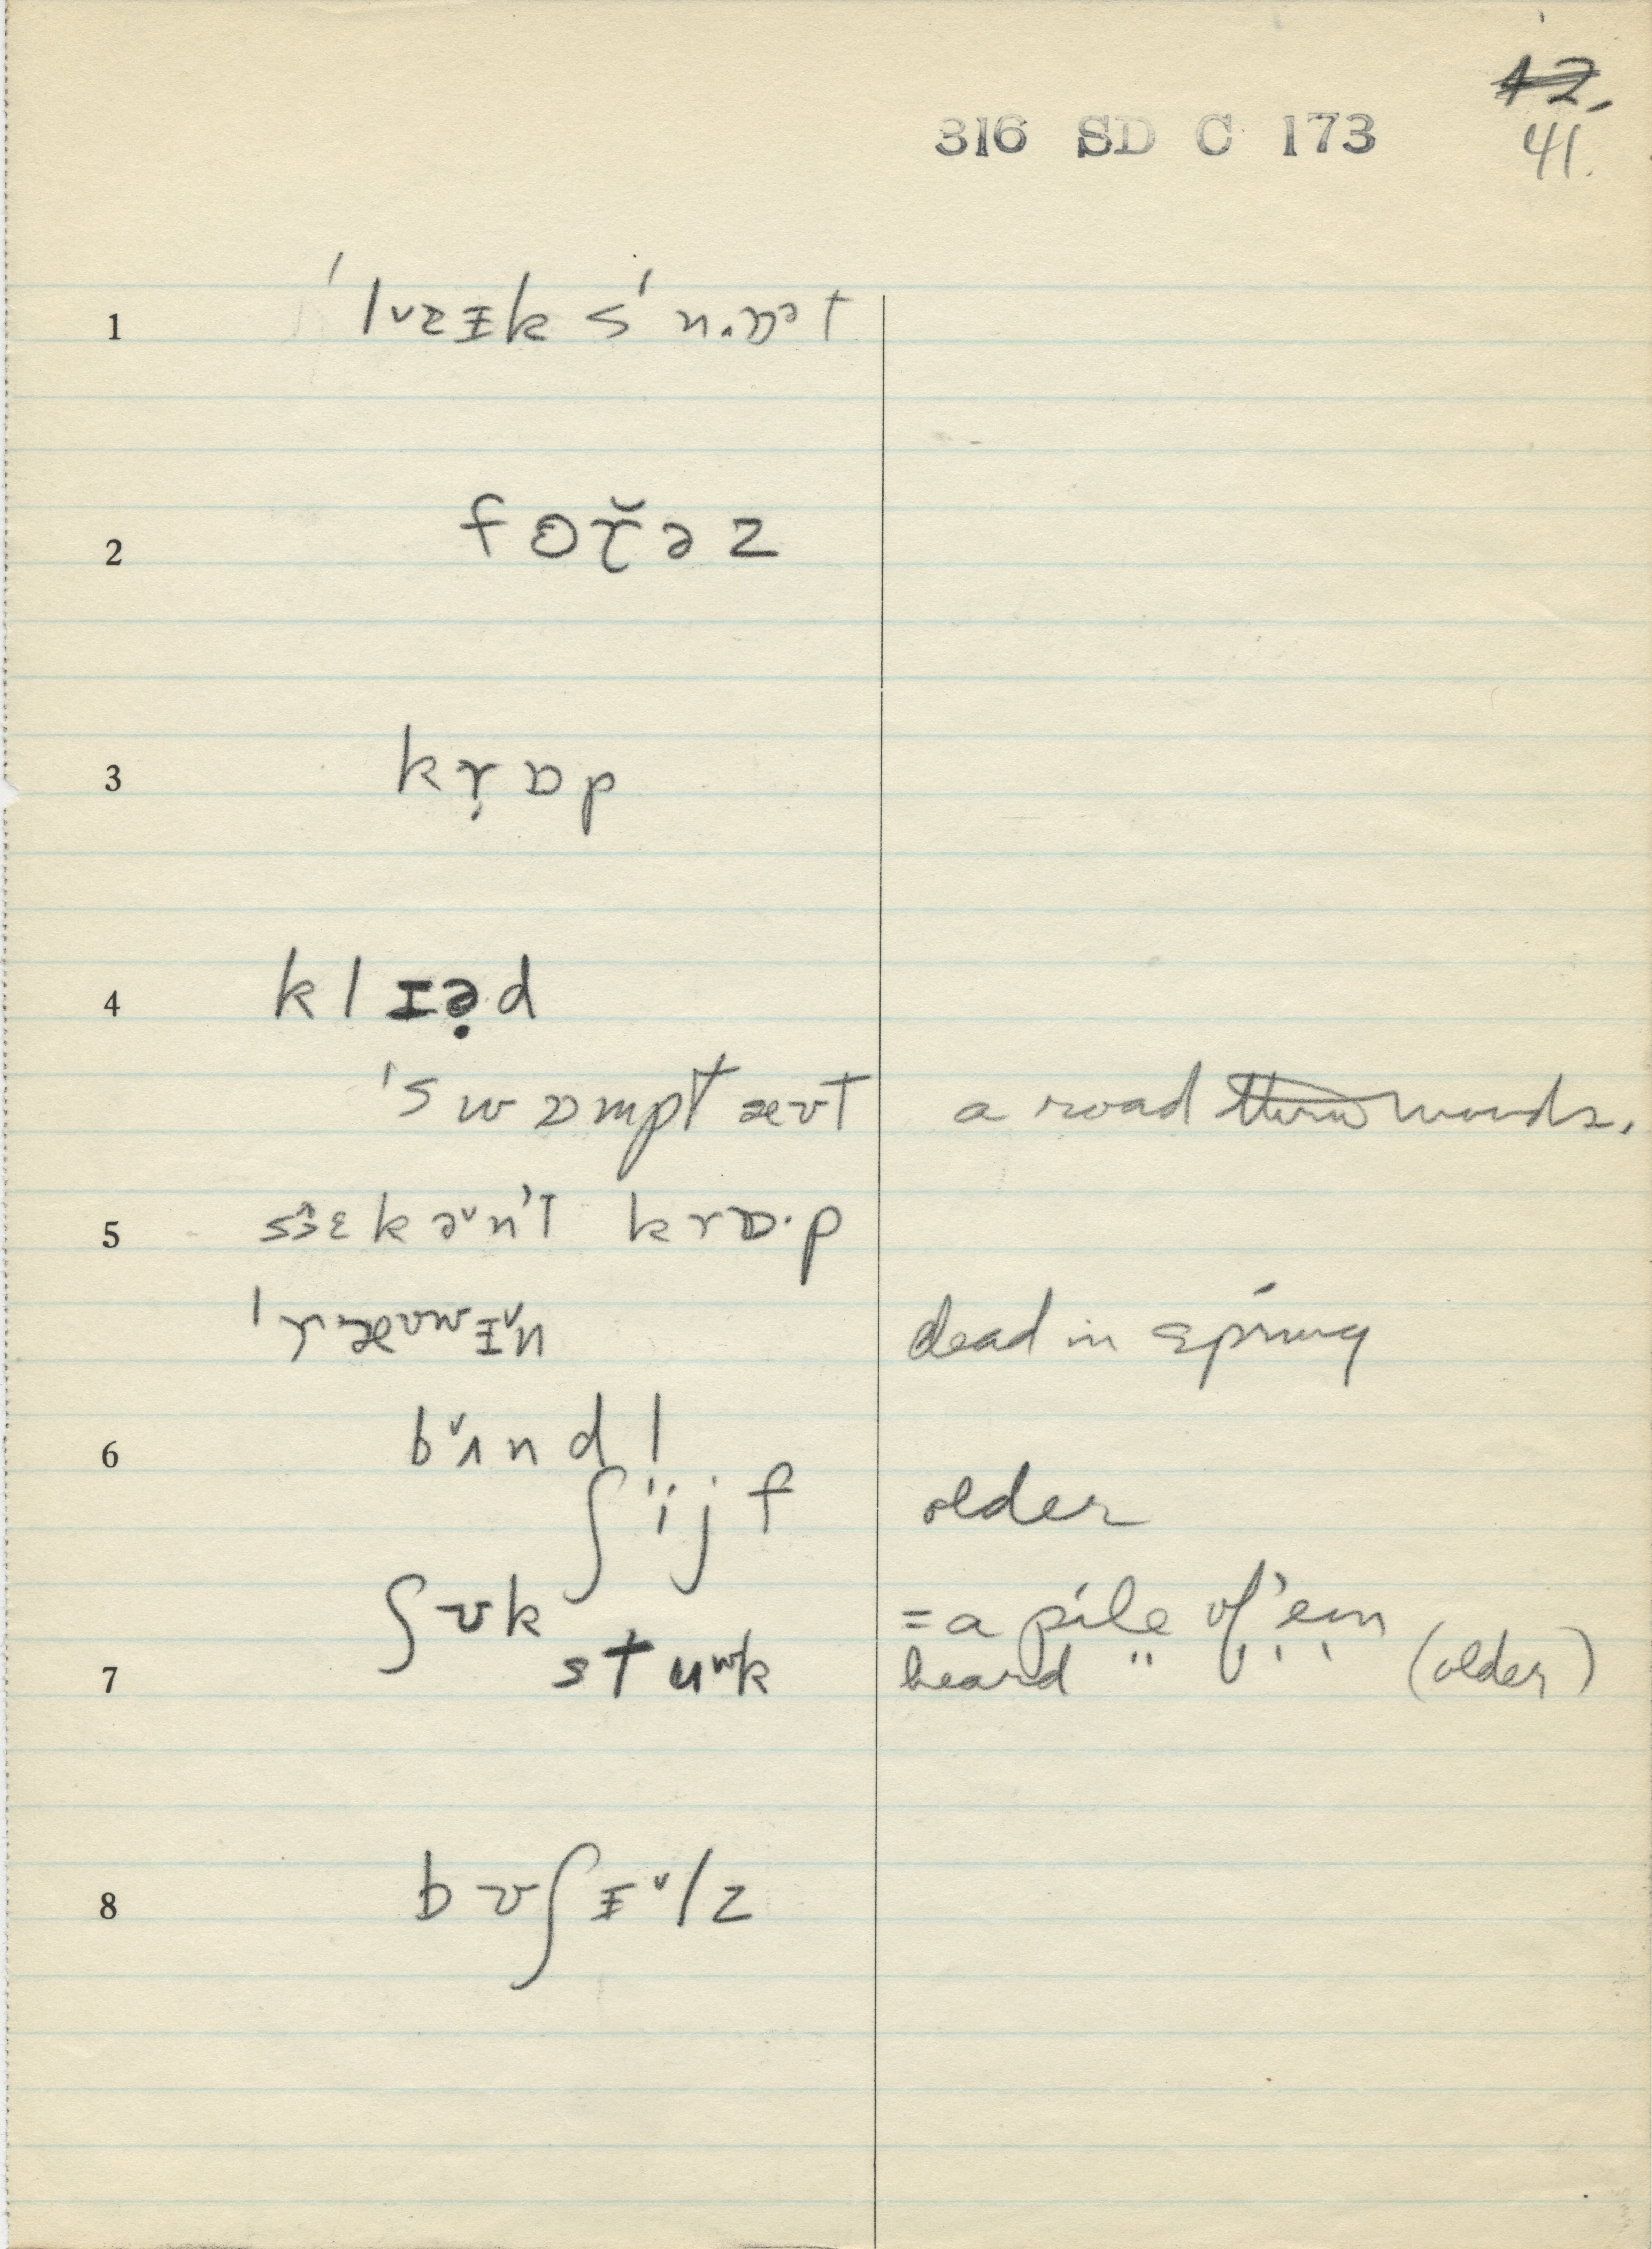 12.
316 SD C 173
41.
1 ˈlᴠzɪk sˈn.ɒᵊt
2 fɵɤ̆əz
3 kɤ̣ɒp
4 klɪə̣d
ˈswɒmptæʊt a road thru woods.
5 sɜ̂ɛkəᵛnˈt krɒ·p
dead in spring
6 bᵛʌndl
ʃˈijf older
ʃʊk = a pile of 'em
7 stuʷk heard " " ' ' (older)
8 bʊʃɪᵛlz